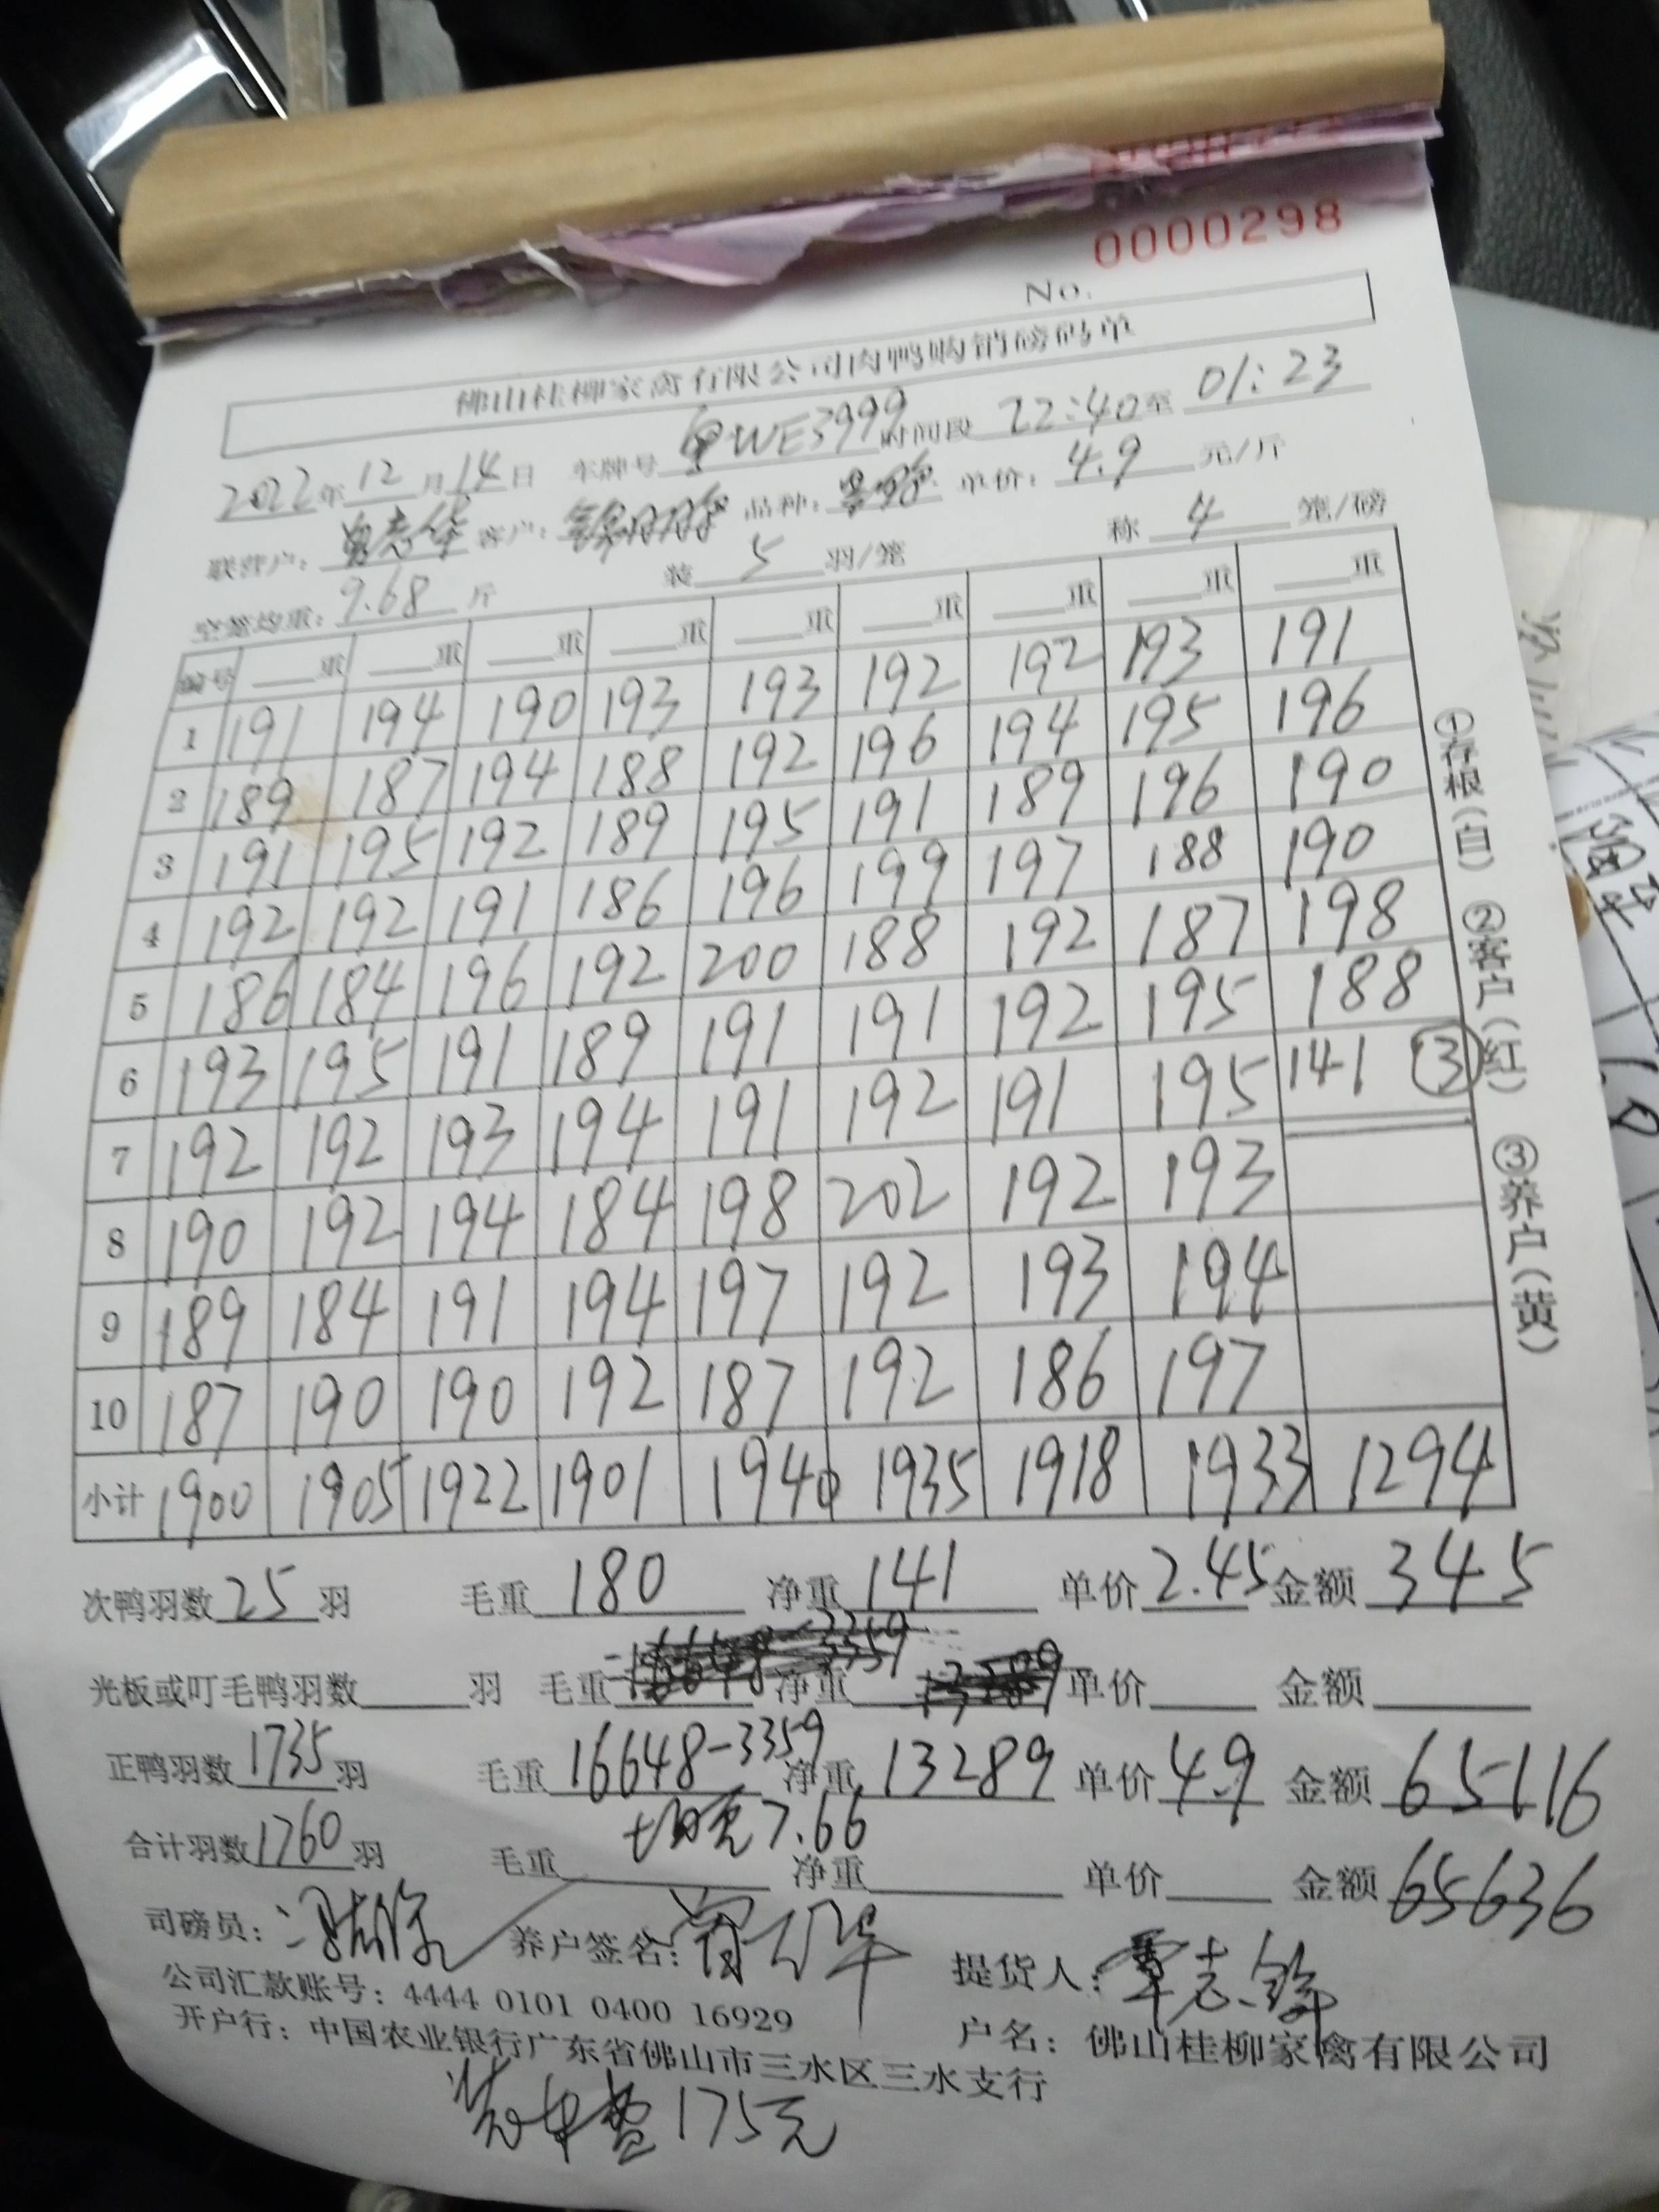 0000298
No.
佛山桂柳家禽有限公司肉鸭购销磅码单
2022年12月14日 车牌号 WE3999 时间段 22:40至 01:23
联营户: 曾志华 客户: 品种: 单价: 4.9 元/斤
空笼均重: 9.68 斤 装 5 羽/笼 称 4 笼/磅
编号 重 重 重 重 重 重 重 重 重
1 191 194 190 193 193 192 192 193 191
2 189 187 194 188 192 196 194 195 196
3 191 195 192 189 195 191 189 196 190
4 192 192 191 186 196 199 197 188 190
5 186 184 196 192 200 188 192 187 198
6 193 195 191 189 191 191 192 195 188
7 192 192 193 194 191 192 191 195 141 ③
8 190 192 194 184 198 202 192 193
9 189 184 191 194 197 192 193 194
10 187 190 190 192 187 192 186 197
小计 1900 1905 1922 1901 1940 1935 1918 1933 1294
①存根(白) ②客户(红) ③养户(黄)
次鸭羽数 25 羽 毛重 180 净重 141 单价 2.45 金额 345
光板或叮毛鸭羽数 羽 毛重 净重 单价 金额
正鸭羽数 1735 羽 毛重 16648-3359 净重 13289 单价 4.9 金额 65116
均重7.66
合计羽数 1760 羽 毛重 净重 单价 金额 65636
司磅员: 养户签名: 曾志华 提货人: 覃志锋
公司汇款账号: 4444 0101 0400 16929 户名: 佛山桂柳家禽有限公司
开户行: 中国农业银行广东省佛山市三水区三水支行
装车费175元